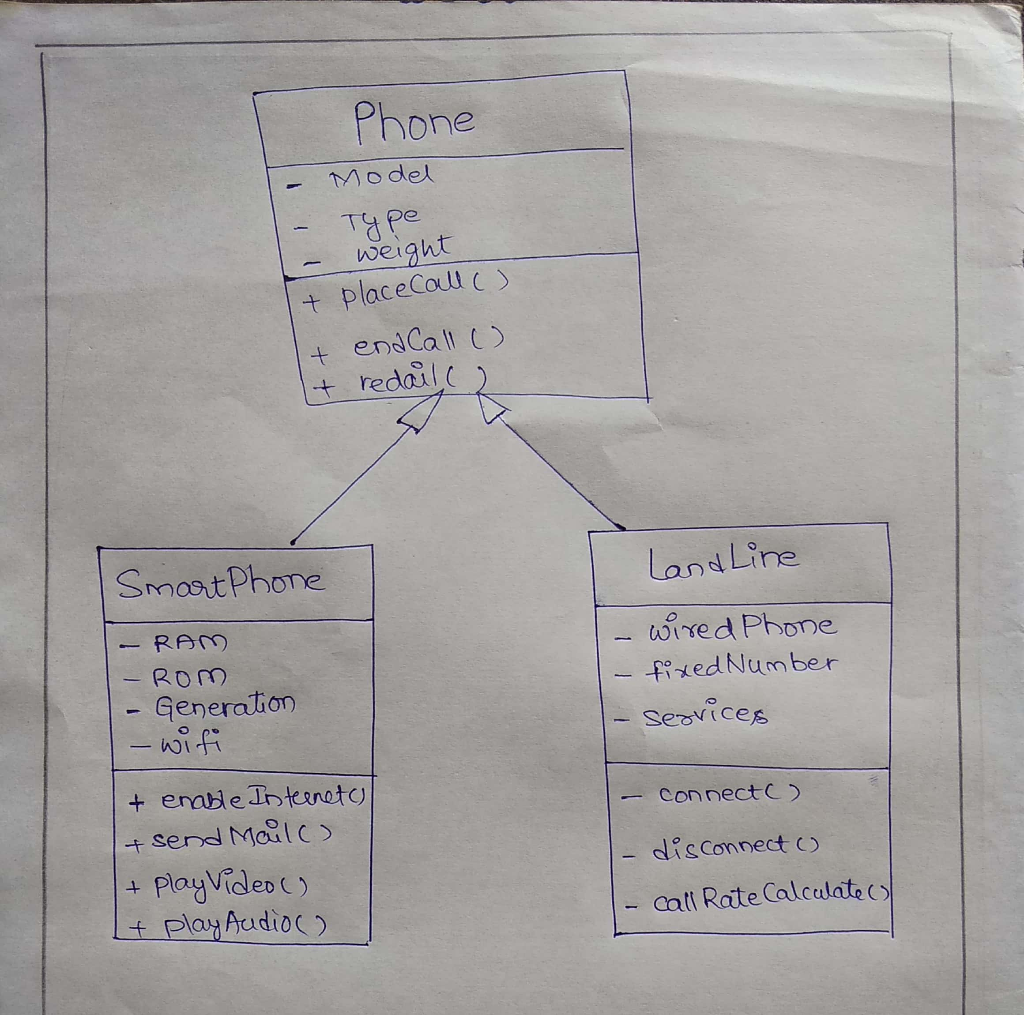 Phone
- Model
- Type
- weight
+ placeCall()
+ endCall()
+ redail()
SmartPhone
- RAM
- ROM
- Generation
- wifi
+ enableInternet()
+ sendMail()
+ playVideo()
+ playAudio()
LandLine
- wiredPhone
- fixedNumber
- services
- connect()
- disconnect()
- callRateCalculate()